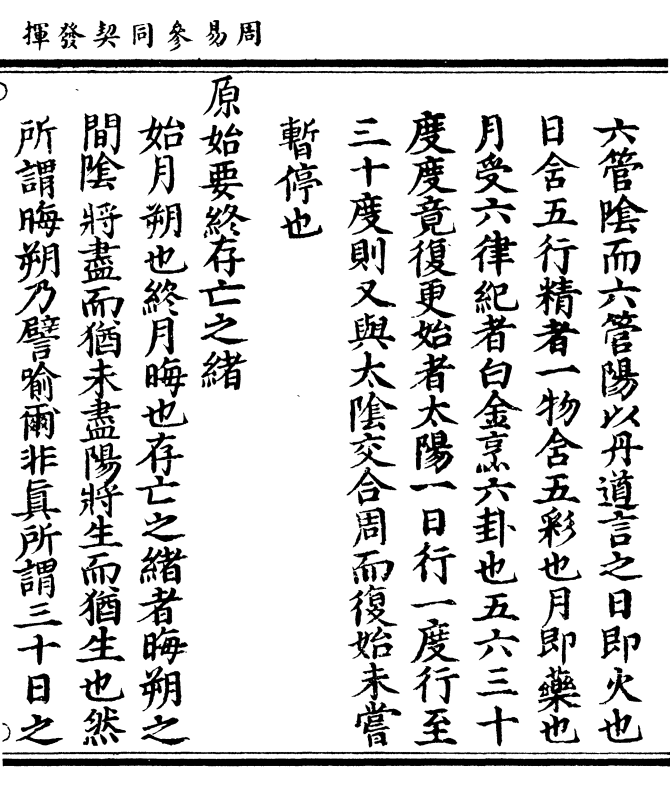 周易參同契發揮
六管陰而六管陽以丹道言之日即火也
日含五行精者一物含五彩也月即藥也
月受六律紀者白金烹六卦也五六三十
度度竟復更始者太陽一日行一度行至
三十度則又與太陰交合周而復始未嘗
暫停也
原始要終存亡之緒
始月朔也終月晦也存亡之緒者晦朔之
間陰將盡而猶未盡陽將生而猶生也然
所謂晦朔乃譬喻爾非眞所謂三十日之